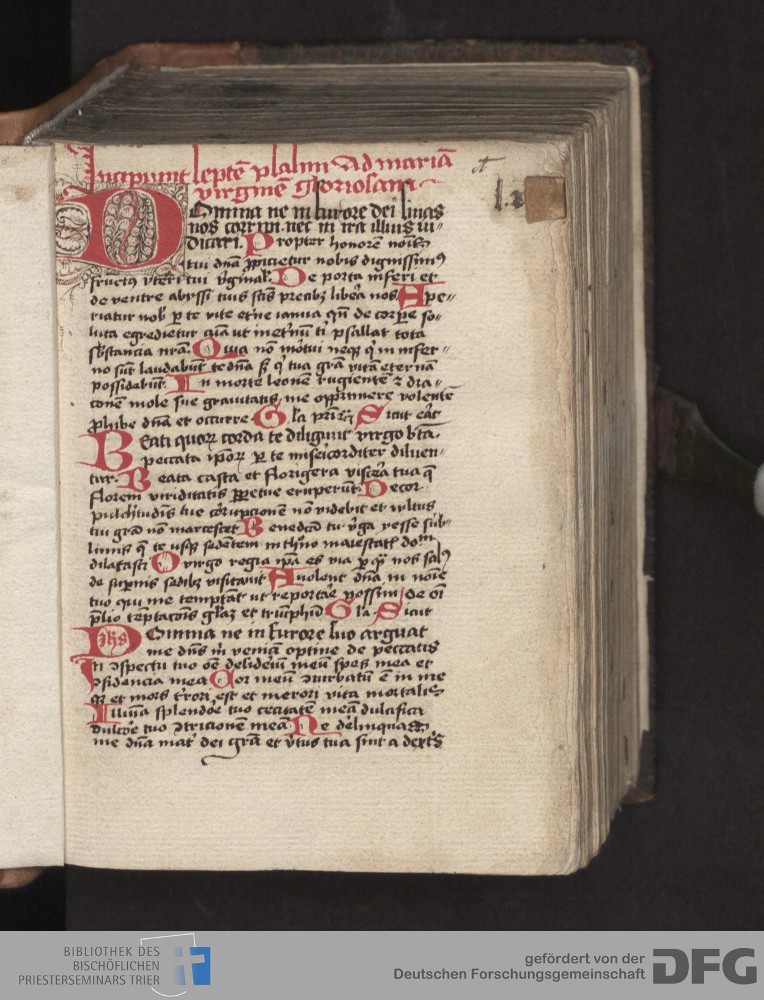 Incipiunt septē psalmi ad mariā
virginē gloriosam
Domina ne in furore dei sinas
nos corripi nec in ira illius iu-
dicari. Propter honorē nois
tui dnā ꝓpicietur nobis dignissimꝰ
fructꝰ vteri tui vginal. De porta inferi et
de ventre abyssi tuis scīs precibꝫ libera nos Ape-
riatur nob
luta egredietur
sbstancia nrā. Quia nō mortui neqꝫ qͥ in infer-
no sūt laudabūt te dnā sꝫ qͥ tua grā vitā eternā
possidebūt. In morte leonē rugientē ⁊ dra-
conē mole sue grauitatis me opprimere volentē
ꝓhibe dnā et occurre Gla pri Sicut erāt
Beati quoꝝ corda te diligunt virgo btā.
peccata ipoꝝ ꝑ te misericorditer diluen-
tur. Beata casta et florigera viscera tua q̄
florem viriditatis ꝑpetue eruperūt Decor
pulchritudinis tue corrupcionem nō videbit et vultus
tui grā nō marcescet Benedcā tu vga yesse sub-
limis q̄ te usqꝫ sedentem in thno maiestatis
dilatasti O virgo regia ipā es via ꝑ
de supernis sedibꝫ visitauit Auolent dnā in noīe
tuo qui me temptāt ut reportare possim de oī
ꝓlio temptacōis glaꝫ et triūphū Gla Sicut
Domina ne in furore suo arguat
me dnūs mͥ veniā optine de peccatis
In ↄspectu tuo oē desideriū meū spes mea et
ↄfidencia mea Cor meū ↄturbatū ē in me
et mors irrorat est et merori vita mortalis
Illumīa splendore tuo cecitatē meā dulcifica
dulcore tuo ↄtricionē meā Ne derelinquas
me dnā mat dei grā et vtus tua sint a dextris
BIBLIOTHEK DES
BISCHÖFLICHEN
PRIESTERSEMINARS TRIER
gefördert von der
Deutschen Forschungsgemeinschaft
DFG